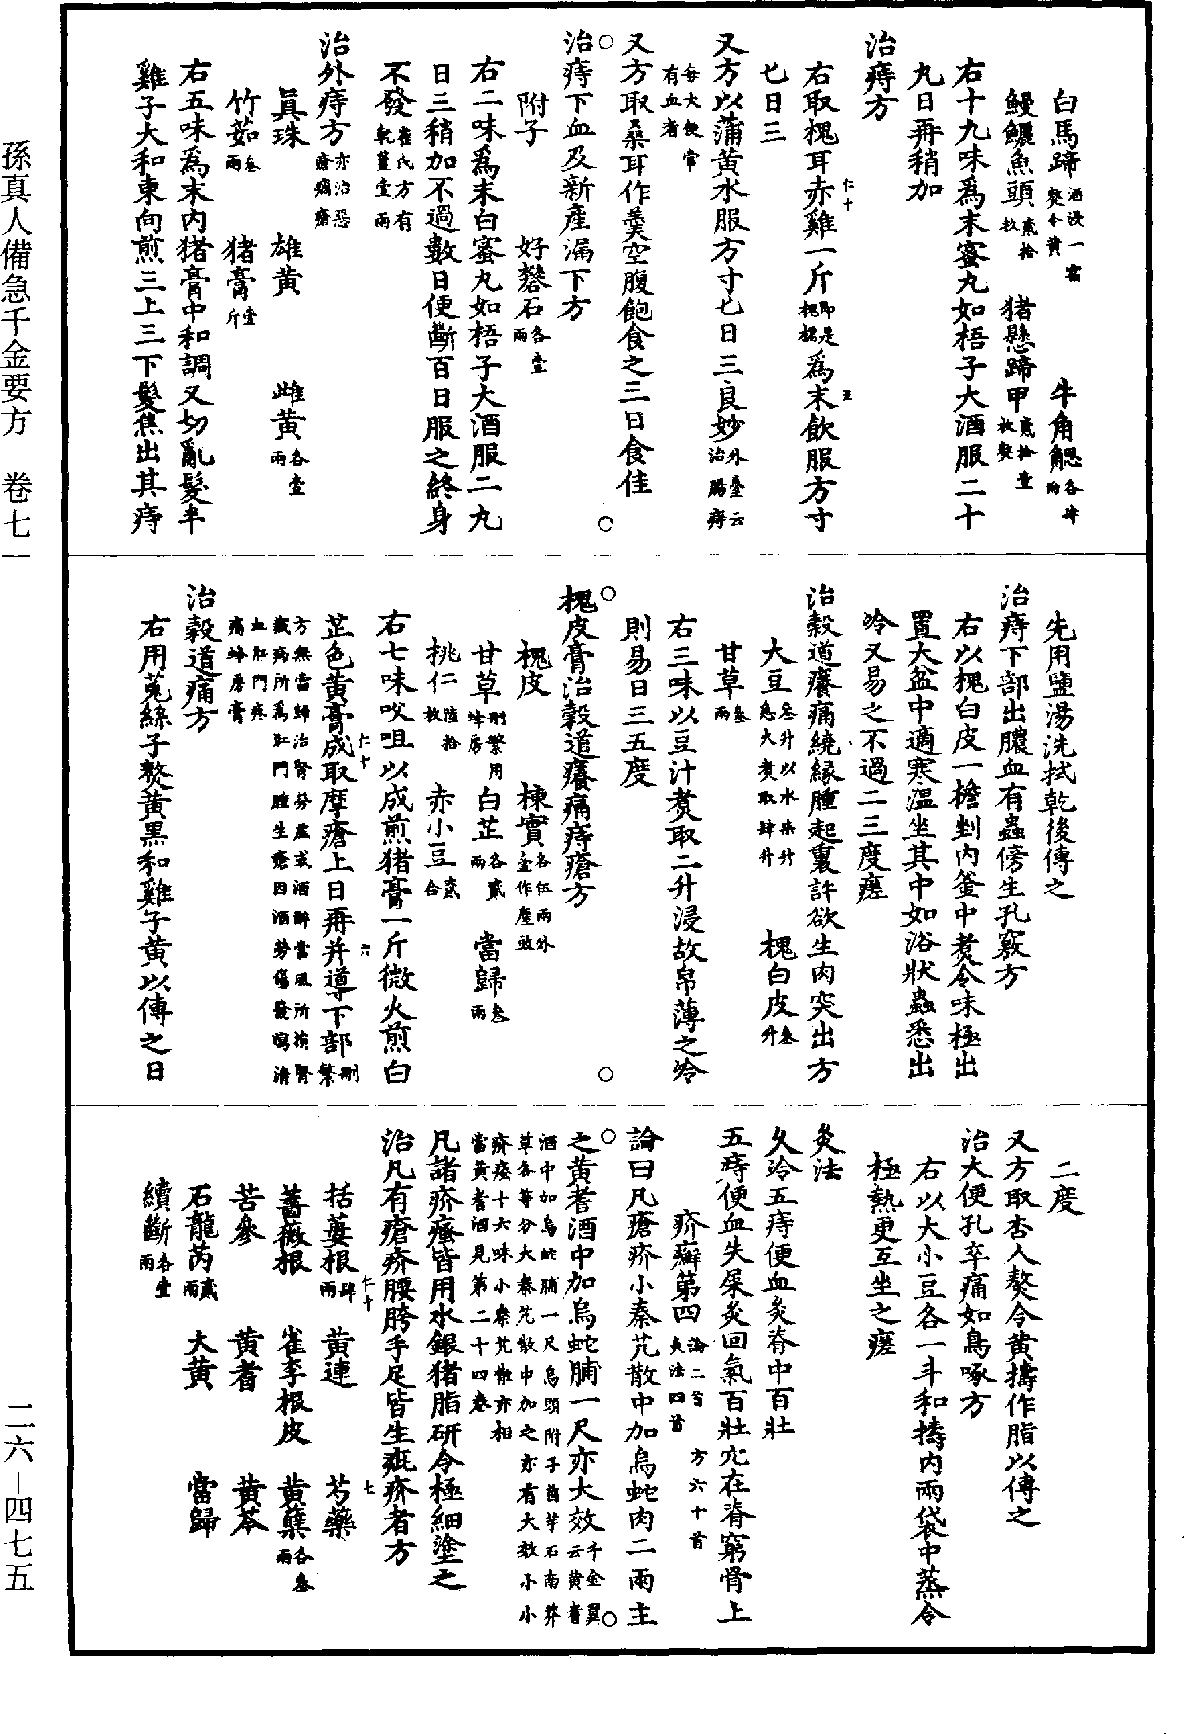 孫真人備急千金要方　卷七一
二六—四七五
白馬蹄酒浸一宿熬令黃　牛角䚡各肆兩
鰻鱺魚頭貳拾枚　猪懸蹄甲貳拾壹枚熬
右十九味爲末蜜丸如梧子大酒服二十
九日再稍加
治痔方
右取槐耳赤雞一斤即是槐檽爲末飲服方寸
匕日三
又方以蒲黃水服方寸匕日三良妙外臺云治腸痔
每大便常有血者
又方取桑耳作羹空腹飽食之三日食佳
○治痔下血及新產漏下方○
附子　好礬石各壹兩
右二味爲末白蜜丸如梧子大酒服二丸
日三稍加不過數日便斷百日服之終身
不發崔氏方有乾薑壹兩
治外痔方亦治惡瘡瘑瘡
眞珠　雄黃　雌黃各壹兩
竹茹叁兩　猪膏壹斤
右五味爲末內猪膏中和調又切亂髮半
雞子大和東向煎三上三下髮焦出其痔
先用鹽湯洗拭乾後傅之
治痔下部出膿血有蟲傍生孔竅方
右以槐白皮一檐剉內釜中煑令味極出
置大盆中適寒溫坐其中如浴狀蟲悉出
冷又易之不過二三度瘥
治穀道癢痛繞緣腫起裏許欲生肉突出方
大豆叁升以水柒升急火煑取肆升　槐白皮叁升
甘草叁兩
右三味以豆汁煑取二升浸故帛薄之冷
則易日三五度
○槐皮膏治穀道癢痛痔瘡方○
槐皮　楝實各伍兩外臺作塵豉
甘草刪繁用蜂房　白芷各貳兩　當歸叁兩
桃仁陸拾枚　赤小豆貳合
右七味㕮咀以成煎猪膏一斤微火煎白
芷色黃膏成取摩瘡上日再幷導下部刪繁
方無當歸治腎勞虛或酒醉當風所損腎
藏病所爲肛門腫生瘡因酒勞傷發瀉清
血肛門疼痛蜂房膏
治穀道痛方
右用菟絲子熬黃黑和雞子黃以傅之日
二度
又方取杏人熬令黃擣作脂以傅之
治大便孔卒痛如鳥啄方
右以大小豆各一斗和擣內兩袋中蒸令
極熱更互坐之瘥
灸法
久冷五痔便血灸脊中百壯
五痔便血失屎灸回氣百壯穴在脊窮骨上
疥癬第四論二首　方六十首
灸法四首
論曰凡瘡疥小秦艽散中加烏蛇肉二兩主
○之黃耆酒中加烏蛇脯一尺亦大效千金翼云黃耆○
酒中加烏蛇脯一尺烏頭附子茵芋石南莽
草各等分大秦艽散中加之亦有大效不小
疥瘙十六味小秦艽散亦相
當黃耆酒見第二十四卷
凡諸疥瘙皆用水銀猪脂研令極細塗之
治凡有瘡疥腰胯手足皆生疵疥者方
括蔞根肆兩　黃連　芍藥
薔薇根　雀李根皮　黃蘗各叁兩
苦參　黃耆　黃芩
石龍芮貳兩　大黃　當歸
續斷各壹兩